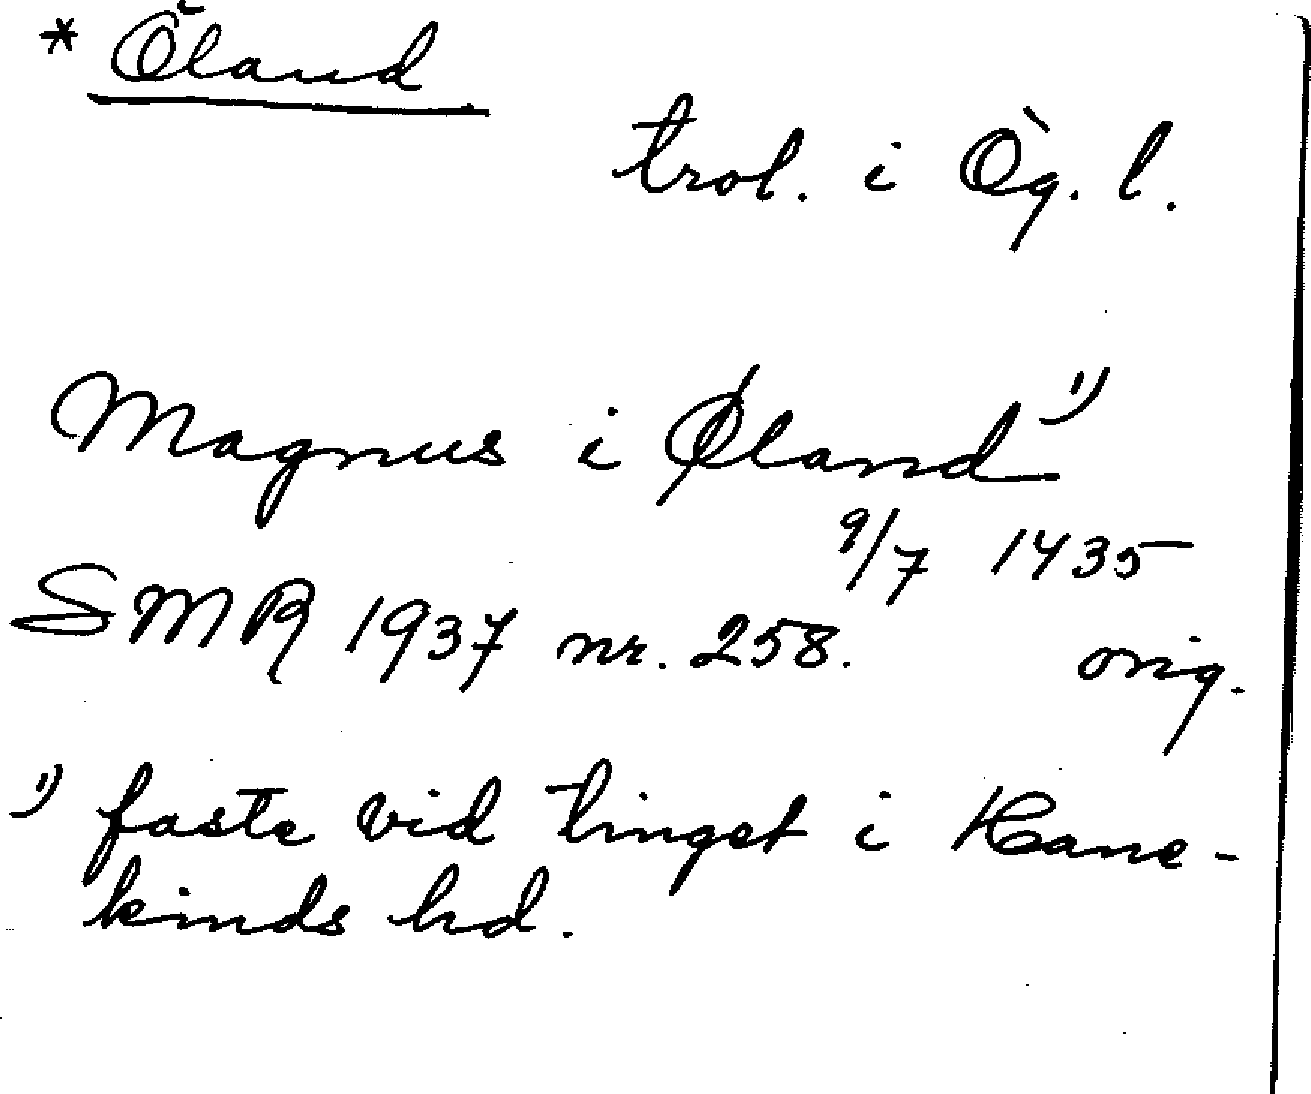 * Öland
trol. i Ög. l.
Magnus i Øland 1)
9/7 1435
SMR 1937 nr. 258. orig.
1) faste vid tinget i Hane-
kinds hd.